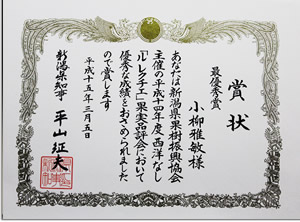 賞状
最優秀賞
小柳雅敏様
あなたは新潟県果樹振興協会
主催の平成十四年度西洋なし
「ルレクチエ」果実品評会において
優秀な成績をおさめられました
ので賞します
平成十五年三月五日
新潟県知事 平山征夫